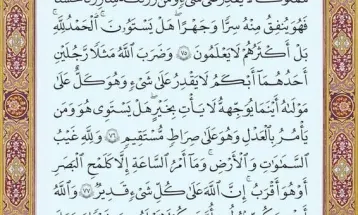 فَهُوَ يُنفِقُ مِنْهُ سِرًّا وَجَهْرًا ۖ هَلْ يَسْتَوُۥنَ ۚ ٱلْحَمْدُ لِلَّهِ ۚ
بَلْ أَكْثَرُهُمْ لَا يَعْلَمُونَ ٧٥ وَضَرَبَ ٱللَّهُ مَثَلًا رَّجُلَيْنِ
أَحَدُهُمَآ أَبْكَمُ لَا يَقْدِرُ عَلَىٰ شَىْءٍ وَهُوَ كَلٌّ عَلَىٰ
مَوْلَىٰهُ أَيْنَمَا يُوَجِّههُّ لَا يَأْتِ بِخَيْرٍ ۖ هَلْ يَسْتَوِى هُوَ وَمَن
يَأْمُرُ بِٱلْعَدْلِ ۙ وَهُوَ عَلَىٰ صِرَٰطٍ مُّسْتَقِيمٍ ٧٦ وَلِلَّهِ غَيْبُ
ٱلسَّمَٰوَٰتِ وَٱلْأَرْضِ ۚ وَمَآ أَمْرُ ٱلسَّاعَةِ إِلَّا كَلَمْحِ ٱلْبَصَرِ
أَوْ هُوَ أَقْرَبُ ۚ إِنَّ ٱللَّهَ عَلَىٰ كُلِّ شَىْءٍ قَدِيرٌ ٧٧ وَٱللَّهُ